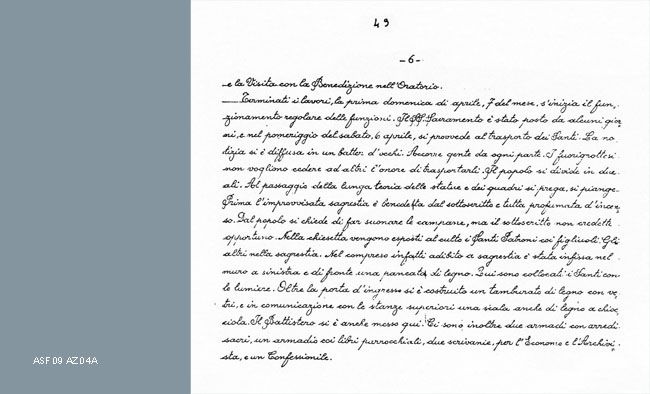 49
-6-
e la Visita con la Benedizione nell'Oratorio.
Terminati i lavori, la prima domenica di aprile, 7 del mese, s'inizia il fun,
zionamento regolare delle funzioni. Il SS. Sacramento è stato posto da alcuni gior
ni, e nel pomeriggio del sabato, 6 aprile, si provvede al trasporto dei Santi. La no
tizia si è diffusa in un batter d'occhi. Accorre gente da ogni parte. I fuorignottesi
non vogliono cedere ad altri l'onore di trasportarli. Il popolo si divide in due
ali. Al passaggio della lunga teoria delle statue e dei quadri si prega, si piange.
Prima l'improvvisata sagrestia è benedetta dal sottoscritto e tutta profumata d'incen
so. Dal popolo si chiede di far suonare le campane, ma il sottoscritto non credette
opportuno. Nella chiesetta vengono esposti al culto i Santi Patroni coi figliuoli. Gli
altri nella sagrestia. Nel compreso infatti adibito a sagrestia è stata infissa nel
muro a sinistra e di fronte una pancata di legno. Qui sono collocati i Santi con
le lumiere. Oltre la porta d'ingresso si è costruito un tamburato di legno con ve,
tri, e in comunicazione con le stanze superiori una scala anche di legno a chioc,
ciola. Il Battistero si è anche messo qui. Ci sono inoltre due armadi con arredi
sacri, un armadio coi libri parrocchiali, due scrivanie, per l'Economo e l'Archivi,
sta, e un Confessionile.
ASF 09 AZ 04A